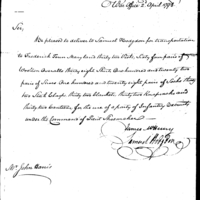 War Office 2d April 1798
Sir,
Be pleased to deliver to Samuel Hodgdon for transportation
to Frederick Town Maryland thirty two Hats, Sixty four pairs of
Woolen Overalls thirty eight Shirts One hundred and twenty two
pairs of Shoes One hundred and twenty pair of Socks thirty
two Stock Clasps thirty two blankets thirty two Knapsacks and
thirty two for the use of a party of Infantry Recruits
under the Command of Lieut
James McHenry
Samuel Hodgdon
Mr John Harris